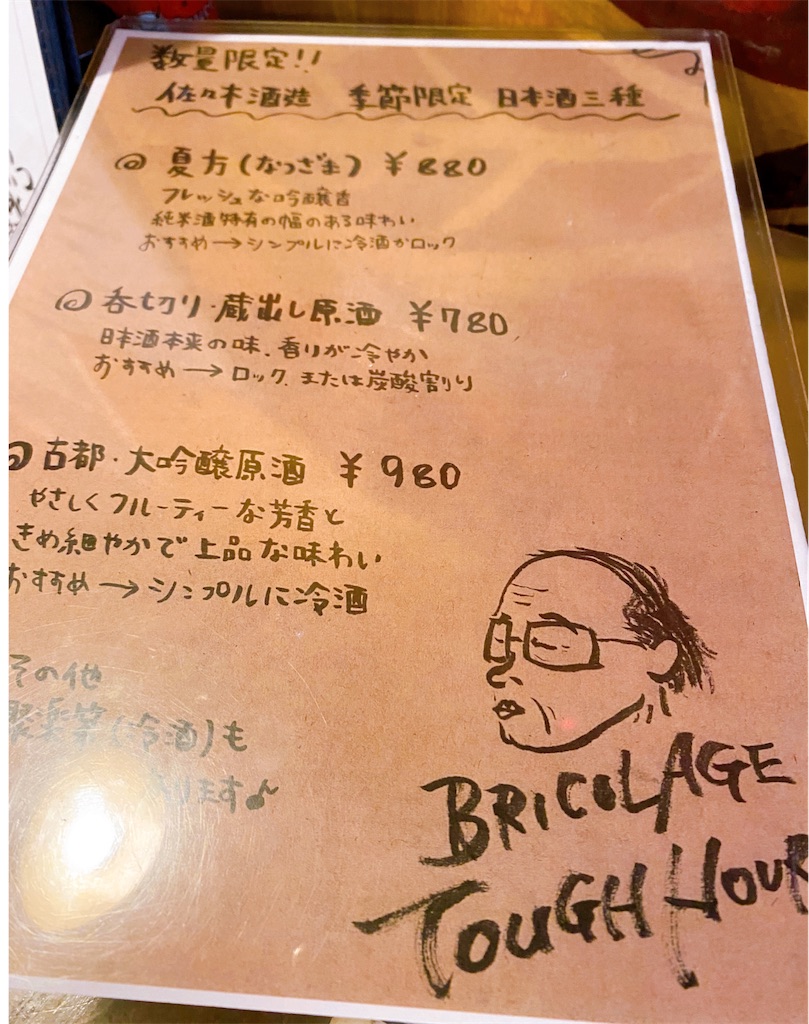 数量限定!!
佐々木酒造 季節限定 日本酒三種
夏方(なつざま) ¥880
フレッシュな吟醸香
純米酒特有の幅のある味わい
おすすめ→シンプルに冷酒かロック
呑切り・蔵出し原酒 ¥780
日本酒本来の味、香りが冷やか
おすすめ→ロック、または炭酸割り
古都・大吟醸原酒 ¥980
やさしくフルーティーな芳香と
きめ細やかで上品な味わい
おすすめ→シンプルに冷酒
その他
聚楽第(冷酒)も
ります♪
BRICOLAGE
TOUGH HOUR